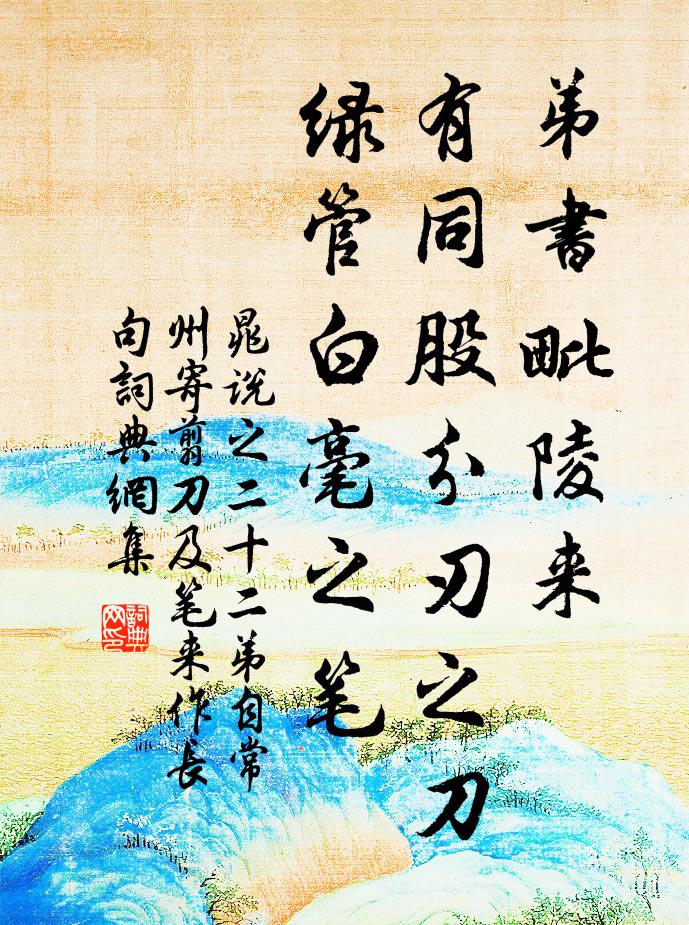 弟書毗陵来
有同股分刃之刀
绿管白毫之笔
晁说之二十二弟自常
州寄翦刀及笔来作長
句詞典網集
詞典
网印